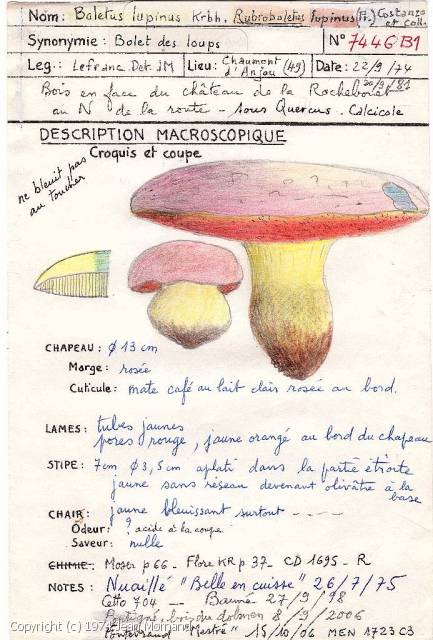 Nom: Boletus lupinus Krbh. Rubroboletus lupinus (Fr.) Costanzo et coll.
Synonymie: Bolet des loups N° 7446B1
Leg: Lefranc Det. JM Lieu: Chaumont d'Anjou (49) Date: 22/9/74
Bois en face du château de la Rochebouet
au N de la route - sous Quercus. Calcicole
DESCRIPTION MACROSCOPIQUE
Croquis et coupe
ne bleuit pas
au toucher
CHAPEAU: Ø 13 cm
Marge: rosée
Cuticule: mate café au lait clair rosée au bord.
LAMES: tubes jaunes
pores rouge, jaune orangé au bord du chapeau
STIPE: 7cm Ø 3,5cm aplati dans la partie étroite
jaune sans réseau devenant olivâtre à la
base
CHAIR: jaune bleuissant surtout - - - -
Odeur: ? acide à la coupe
Saveur: nulle
CHIMIE: Moser p 66 - Flore KR p 37 - CD 1695 - R
NOTES: Nuaillé "Belle en cuisse" 26/7/75
Cetto 704 - Bauné 27/9/98
bois du dolmen 8/9/2006
Fontevraud Mestré 15/10/06 MEN 1723 C3
Copyright (c) 1974 Jean Mornand